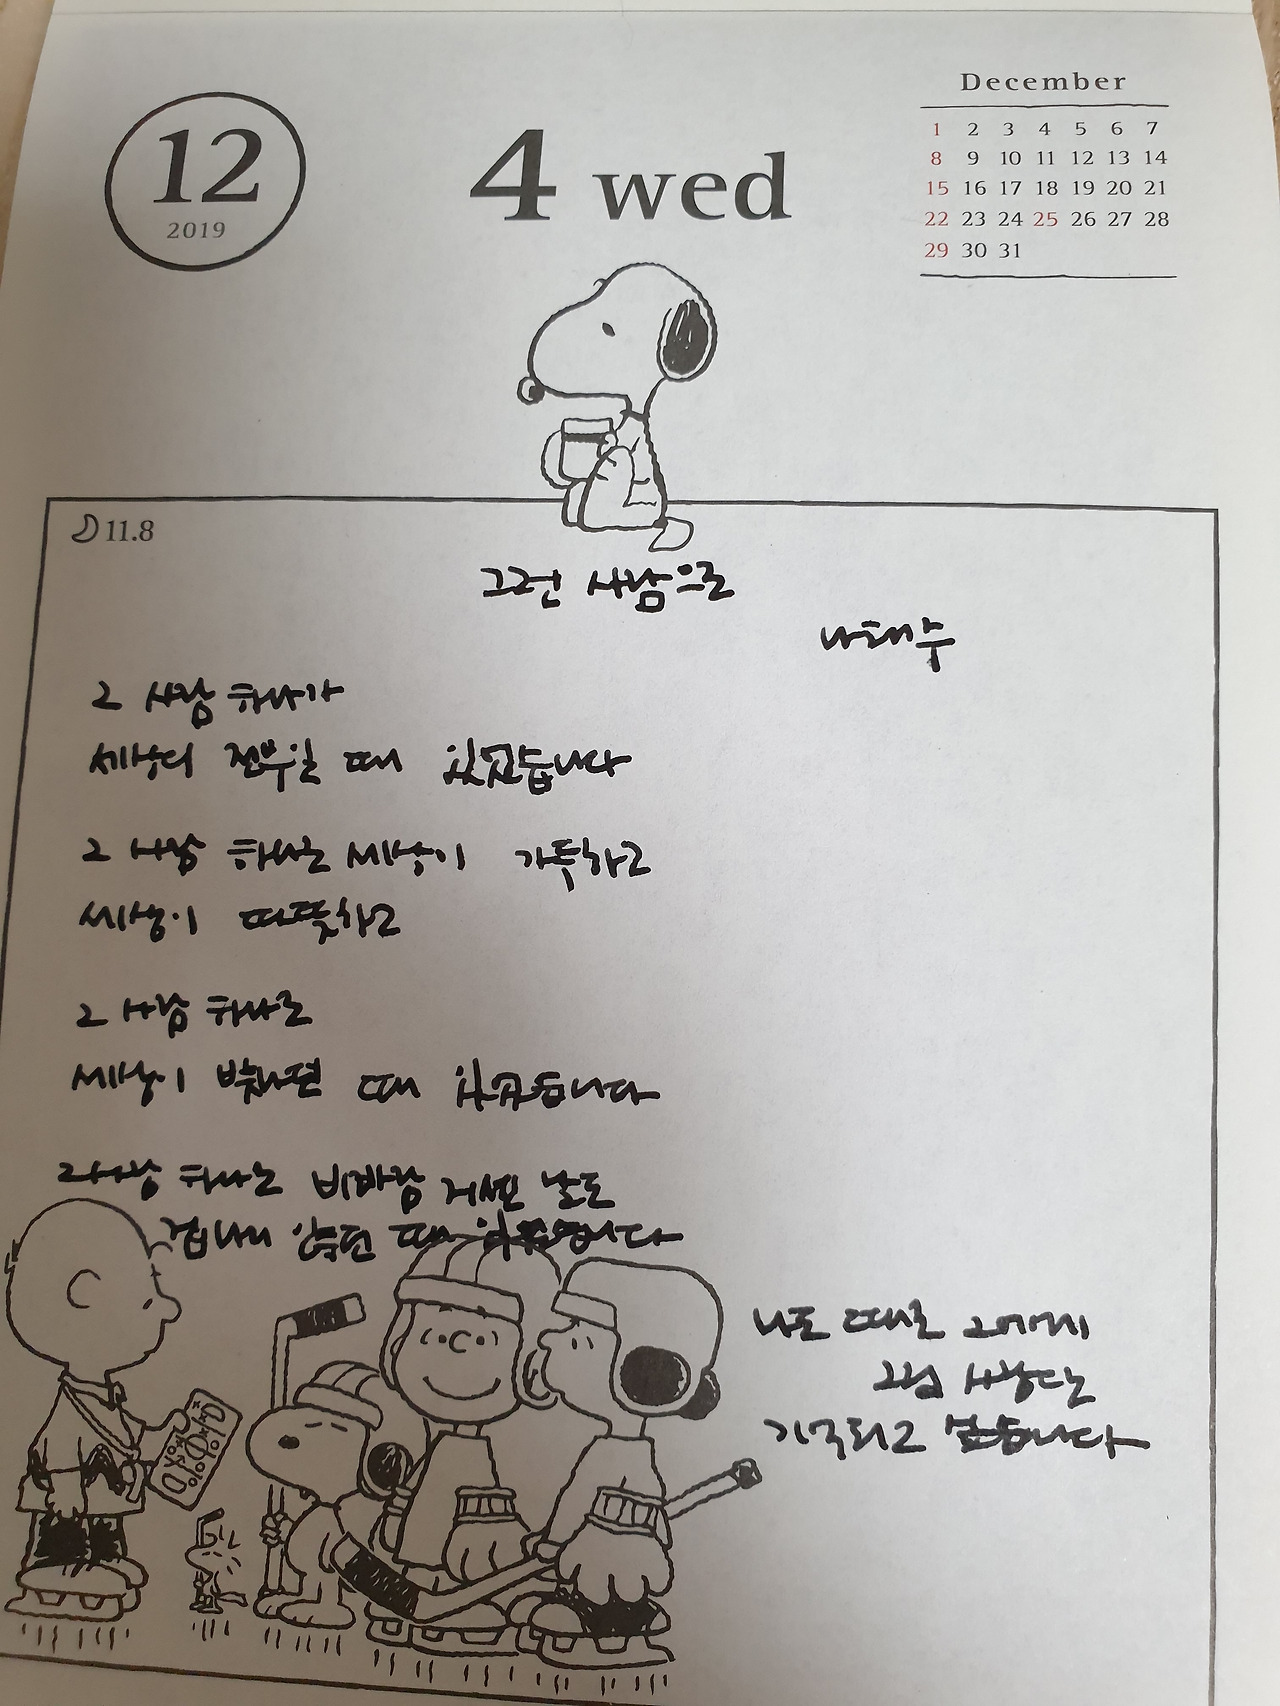 12
2019
4 wed
December
1 2 3 4 5 6 7
8 9 10 11 12 13 14
15 16 17 18 19 20 21
22 23 24 25 26 27 28
29 30 31
11.8
그런 사람으로
나태주
그 사람 하나가
세상의 전부일 때 있었습니다
그 사람 하나로 세상이 가득하고
세상이 따뜻하고
그 사람 하나로
세상이 빛나던 때 있었습니다
그 사람 하나로 비바람 거센 날도
겁나지 않던 때 있었습니다
나도 때로 그에게
그런 사람으로
기억되고 싶습니다